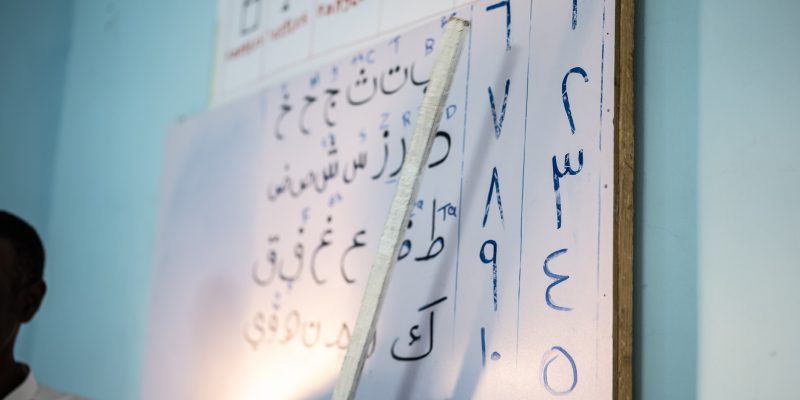 ١ ٦
٢ ٧
٣ ٨
٤ ٩
٥ ١٠
B T C
ب ت ث ج ح خ
D R Z S
د ر ز س ش ص ض
Ta
ط ظ ع غ ف ق
ك م ن ه و ي